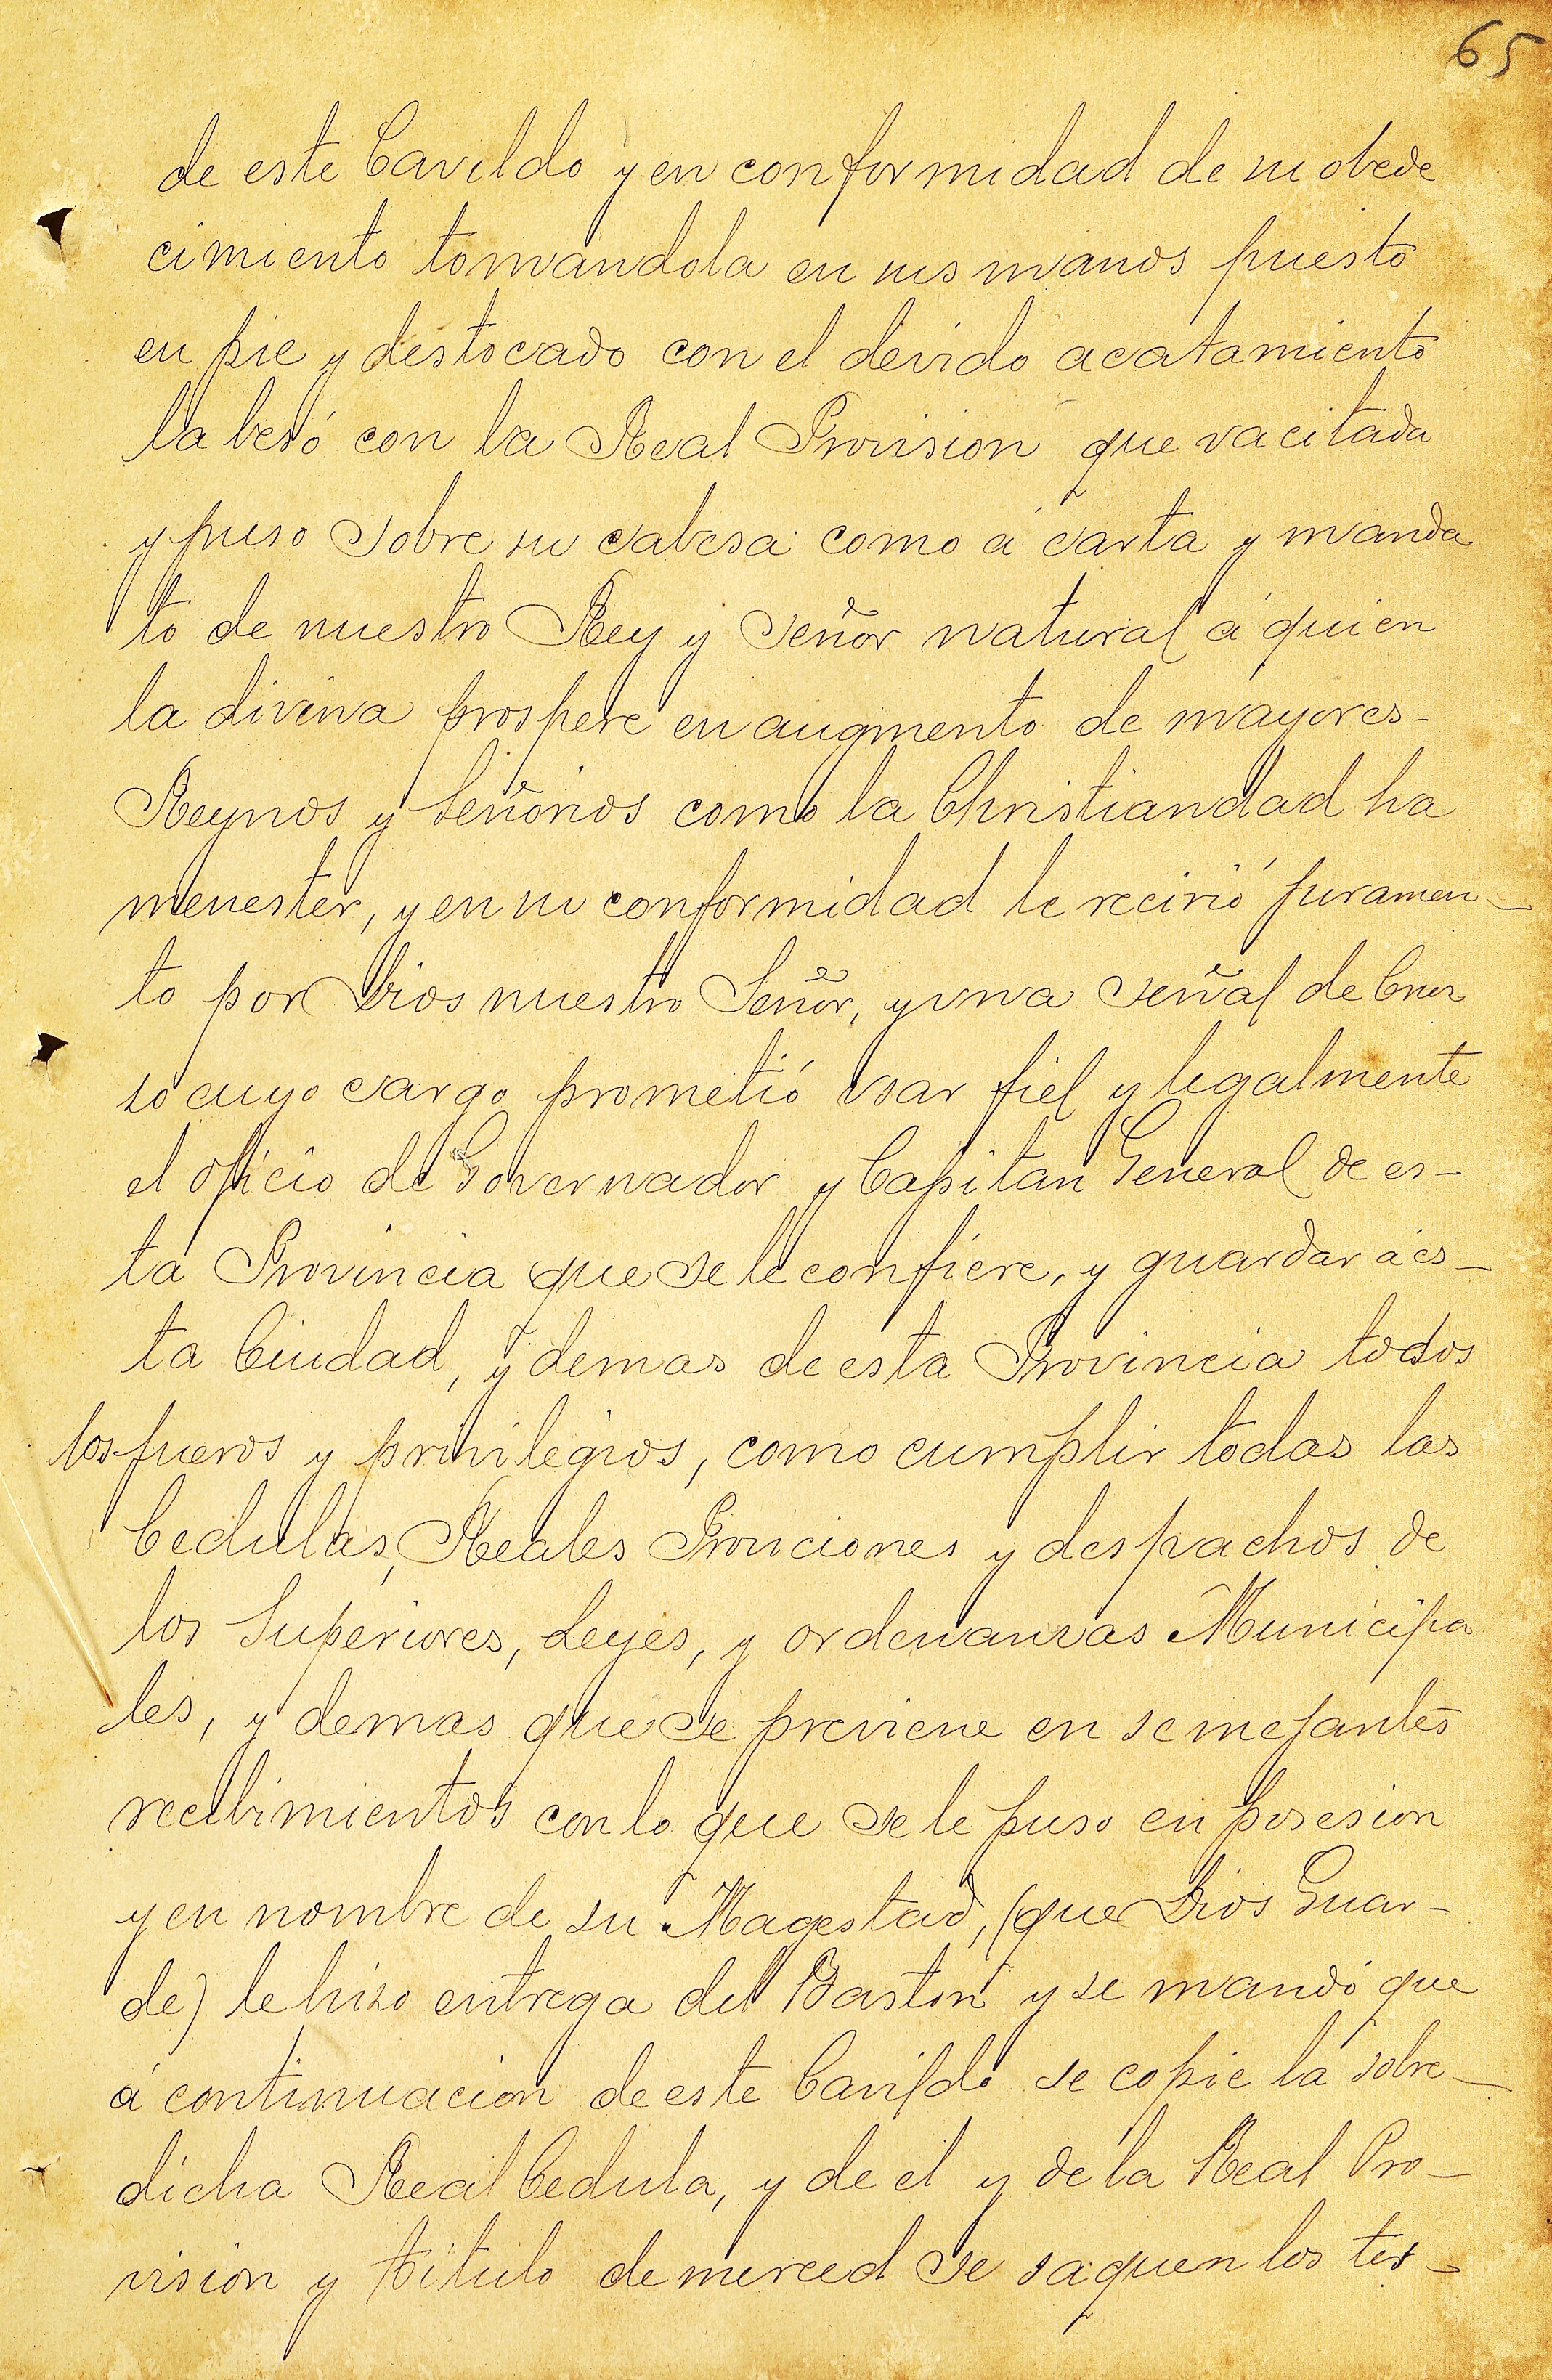 65
de este Cavildo y en conformidad de su obede
cimiento tomandola en sus manos puesto
en pie y destocado con el devido acatamiento
la besó con la Real Provision que va citada
y puso sobre su cabesa como á carta y manda
to de nuestro Rey y Señor natural á quien
la divina prospere en augmento de mayores-
Reynos y Señorios como la Christiandad ha
menester, y en su conformidad le recivió juramen-
to por Dios nuestro Señor, y vna señal de Cruz
so cuyo cargo prometió vsar fiel y legalmente
el oficio de Governador y Capitan General de es-
ta Provincia que se le confiere, y guardar á es-
ta Ciudad, y demas de esta Provincia todos
los fueros y privilegios, como cumplir todas las
Cedulas, Reales Proviciones y despachos de
los Superiores, Leyes, y ordenanzas Municipa
les, y demas que se previene en semejantes
recebimientos con lo que se le puso en posesion
y en nombre de su Magestad, (que Dios Guar-
de) le hizo entrega del Baston y se mandó que
á continuacion de este Cavildo se copie la sobre-
dicha Real Cedula, y de el y de la Real Pro-
vision y titulo de merced se saquen los tes-